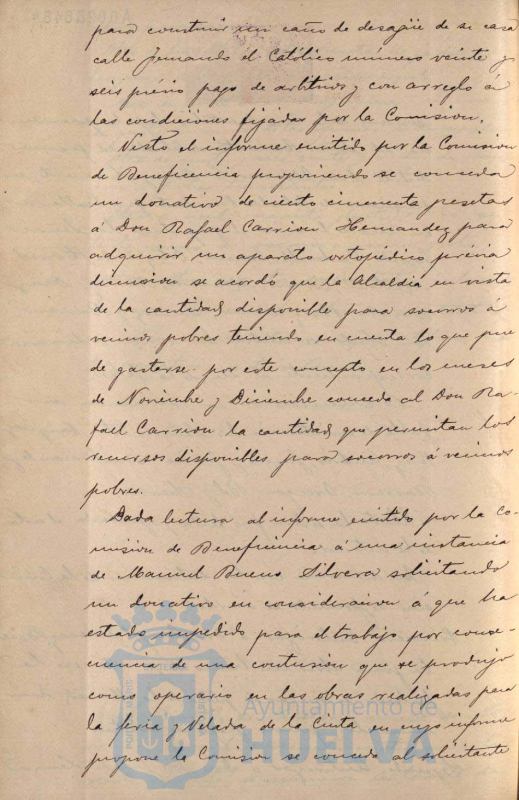 para construir un caño de desagüe de su casa
calle Fernando el Católico número veinte y
seis prévio pago de arbitrios y con arreglo á
las condiciones fijadas por la Comision.
Visto el informe emitido por la Comision
de Beneficencia proponiendo se conceda
un donativo de ciento cincuenta pesetas
á Don Rafael Carrion Hernandez para
adquirir un aparato ortopédico prévia
discusion se acordó que la Alcaldia en vista
de la cantidad disponible para socorros á
vecinos pobres teniendo en cuenta lo que pue-
de gastarse por este concepto en los meses
de Noviembre y Diciembre conceda al Don Ra-
fael Carrion la cantidad que permitan los
recursos disponibles para socorros á vecinos
pobres.
Dada lectura al informe emitido por la Co-
mision de Beneficencia á una instancia
de Manuel Bueno Silvera solicitando
un donativo en consideracion á que ha
estado impedido para el trabajo por conse-
cuencia de una contusion que se produjo
como operario en las obras realizadas para
la feria y Velada de la Cinta en cuyo informe
propone la Comision se conceda al solicitante
Ayuntamiento de
HUELVA